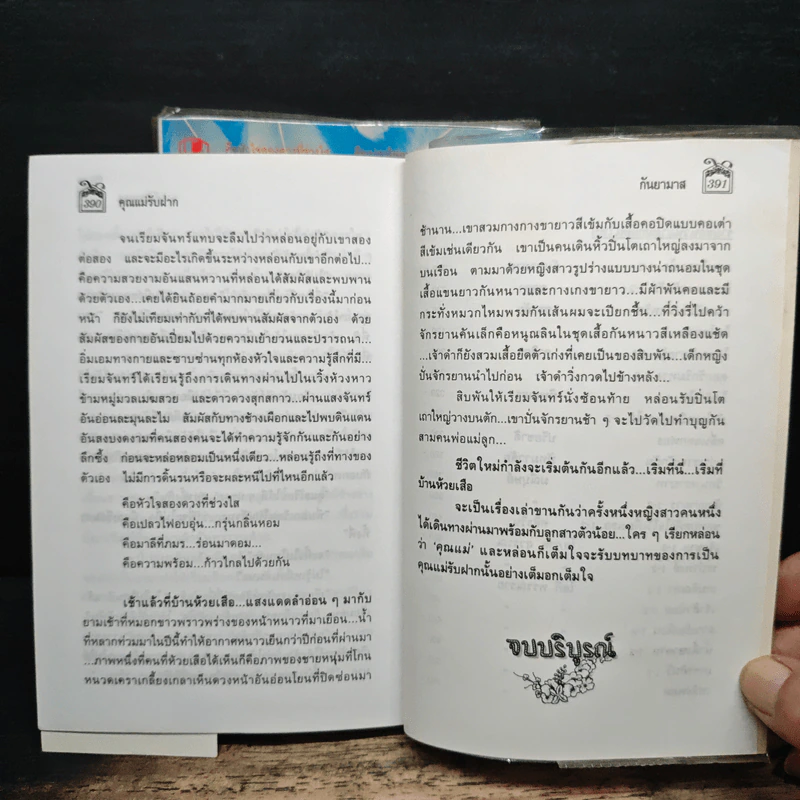 390
คุณแม่รับฝาก
จนเรียมจันทร์แทบจะลืมไปว่าหล่อนอยู่กับเขาสอง
ต่อสอง และจะมีอะไรเกิดขึ้นระหว่างหล่อนกับเขาอีกต่อไป...
คือความสวยงามอันแสนหวานที่หล่อนได้สัมผัสและพบพาน
ด้วยตัวเอง...เคยได้ยินถ้อยคำมากมายเกี่ยวกับเรื่องนี้มาก่อน
หน้า ก็ยังไม่เทียมเท่ากับที่ได้พบพานสัมผัสจากตัวเอง ด้วย
สัมผัสของกายอันเปี่ยมไปด้วยความเย้ายวนและปรารถนา...
อิ่มเอมทางกายและซาบซ่านทุกห้องหัวใจและความรู้สึกที่มี...
เรียมจันทร์ได้เรียนรู้ถึงการเดินทางผ่านไปในเวิ้งห้วงหาว
ข้ามหมู่มวลเมฆสวย และดาวดวงสุกสกาว...ผ่านแสงจันทร์
อันอ่อนละมุนละไม สัมผัสกับทางช้างเผือกและไปพบดินแดน
อันสงบงดงามที่คนสองคนจะได้ทำความรู้จักกันและกันอย่าง
ลึกซึ้ง ก่อนจะหล่อหลอมเป็นหนึ่งเดียว...หล่อนรู้ถึงที่ทางของ
ตัวเอง ไม่มีการดิ้นรนหรือจะผละหนีไปที่ไหนอีกแล้ว
คือหัวใจสองดวงที่ช่วงไส
คือเปลวไฟอบอุ่น...กรุ่นกลิ่นหอม
คือมาลีที่ภมร...ร่อนมาดอม...
คือความพร้อม...ก้าวไกลไปด้วยกัน
เช้าแล้วที่บ้านห้วยเสือ...แสงแดดลำอ่อน ๆ มากับ
ยามเช้าที่หมอกขาวพราวพร่างของหน้าหนาวที่มาเยือน...น้ำ
ที่หลากท่วมมาในปีนี้ทำให้อากาศหนาวเย็นกว่าปีก่อนที่ผ่านมา
...ภาพหนึ่งที่คนที่ห้วยเสือได้เห็นก็คือภาพของชายหนุ่มที่โกน
หนวดเคราเกลี้ยงเกลาเห็นดวงหน้าอันอ่อนโยนที่ปิดซ่อนมา
กันยามาส
391
ช้านาน...เขาสวมกางกางขายาวสีเข้มกับเสื้อคอปิดแบบคอเต่า
สีเข้มเช่นเดียวกัน เขาเป็นคนเดินหิ้วปิ่นโตเถาใหญ่ลงมาจาก
บนเรือน ตามมาด้วยหญิงสาวรูปร่างแบบบางน่าถนอมในชุด
เสื้อแขนยาวกันหนาวและกางเกงขายาว...มีผ้าพันคอและมี
กระทั่งหมวกไหมพรมกันเส้นผมจะเปียกชื้น...ที่วิ่งรี่ไปคว้า
จักรยานคันเล็กคือหนูณลินในชุดเสื้อกันหนาวสีเหลืองแช้ด
...เจ้าดำก็ยังสวมเสื้อยืดตัวเก่งที่เคยเป็นของสิบพัน...เด็กหญิง
ปั่นจักรยานนำไปก่อน เจ้าดำวิ่งกวดไปข้างหลัง...
สิบพันให้เรียมจันทร์นั่งซ้อนท้าย หล่อนรับปิ่นโต
เถาใหญ่วางบนตัก...เขาปั่นจักรยานช้า ๆ จะไปวัดไปทำบุญกัน
สามคนพ่อแม่ลูก...
ชีวิตใหม่กำลังจะเริ่มต้นกันอีกแล้ว...เริ่มที่นี่...เริ่มที่
บ้านห้วยเสือ
จะเป็นเรื่องเล่าขานกันว่าครั้งหนึ่งหญิงสาวคนหนึ่ง
ได้เดินทางผ่านมาพร้อมกับลูกสาวตัวน้อย...ใคร ๆ เรียกหล่อน
ว่า 'คุณแม่' และหล่อนก็เต็มใจจะรับบทบาทของการเป็น
คุณแม่รับฝากนั้นอย่างเต็มอกเต็มใจ
จบบริบูรณ์